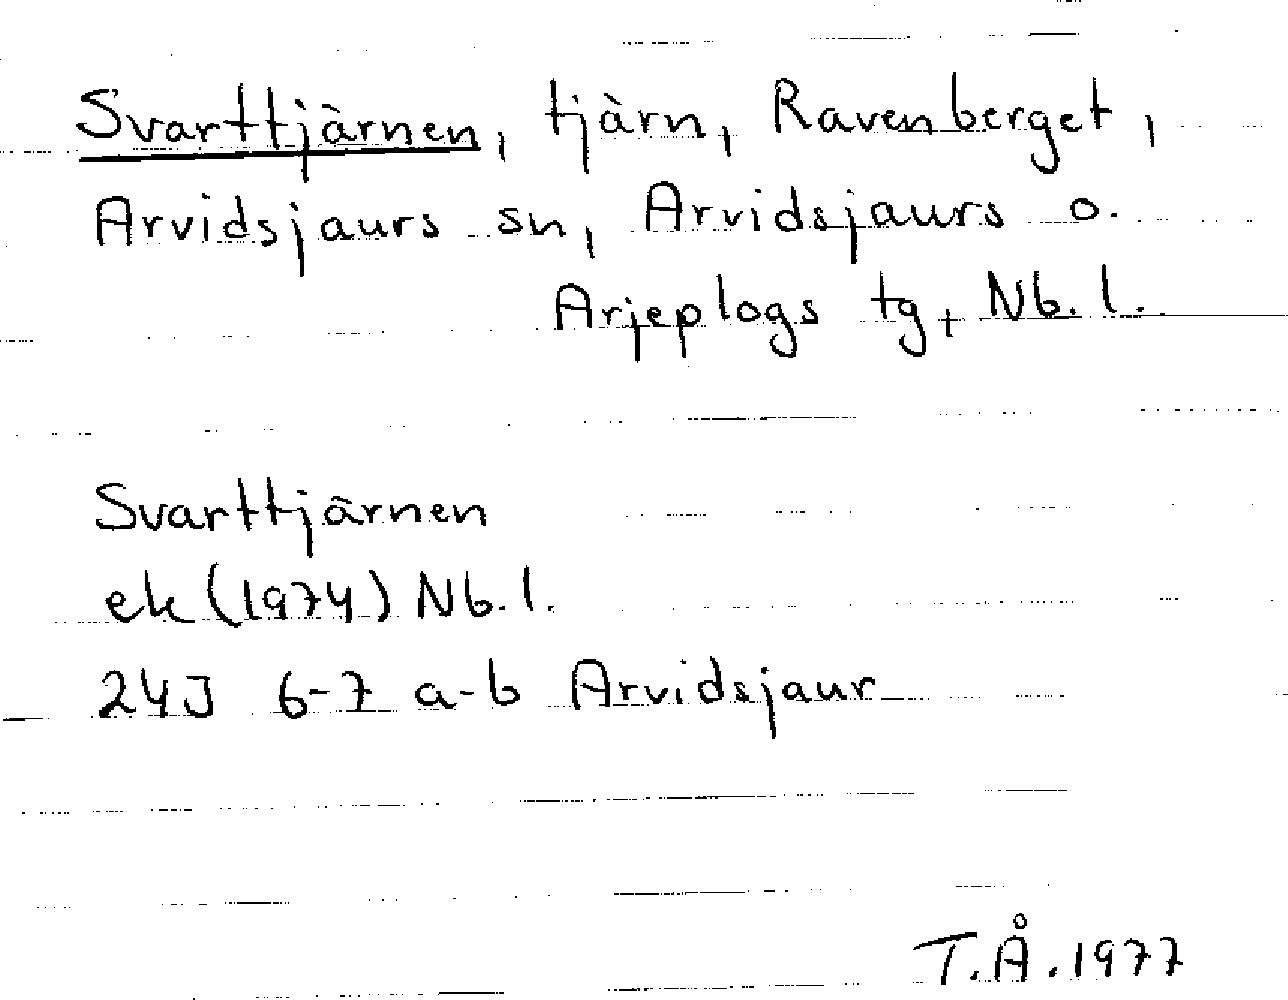 Svarttjärnen, tjärn, Ravenberget,
Arvidsjaurs sn, Arvidsjaurs o.
Arjeplogs tg, Nb. l.
Svarttjärnen
ek (1974) Nb. l.
24J 6-7 a-b Arvidsjaur
T.Å. 1977